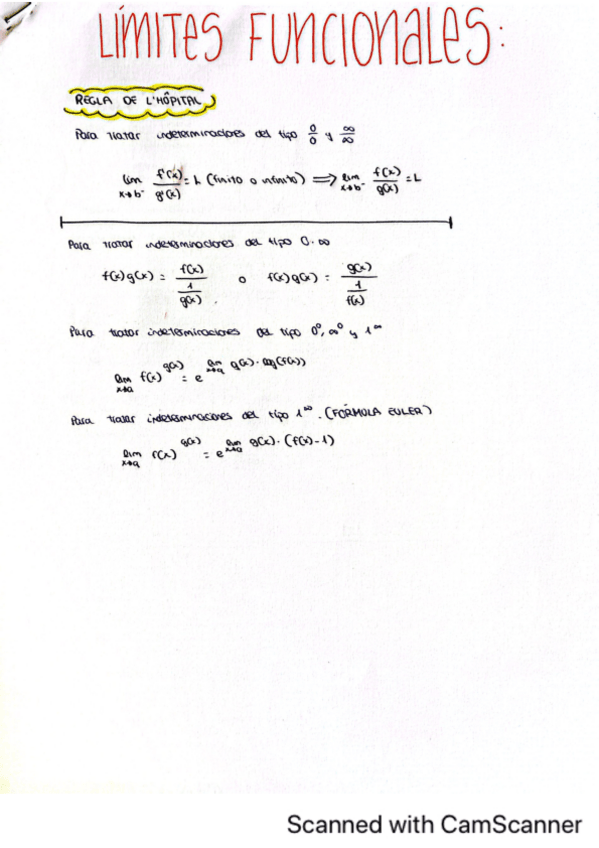 LÍMITES FUNCIONALES:
REGLA DE L'HÔPITAL
Para tratar indeterminaciones del tipo 0/0 y ∞/∞
lim x→b⁻ f'(x)/g'(x) = L (finito o infinito) ⟹ lim x→b⁻ f(x)/g(x) = L
Para tratar indeterminaciones del tipo 0·∞
f(x)g(x) = f(x)/(1/g(x)) o f(x)g(x) = g(x)/(1/f(x))
Para tratar indeterminaciones del tipo 0⁰, ∞⁰ y 1^∞
lim x→a f(x)^g(x) = e^lim x→a g(x)·log(f(x))
Para tratar indeterminaciones del tipo 1^∞. (FÓRMULA EULER)
lim x→a f(x)^g(x) = e^lim x→a g(x)·(f(x)-1)
Scanned with CamScanner